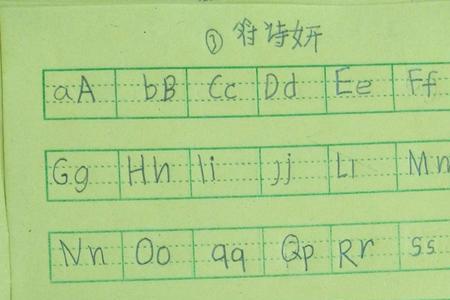 ① 符诗妍
aA bB Cc Dd Ee Ff
Gg Hh Ii Jj Lı Mn
Nn Oo qq Qp Rr Ss